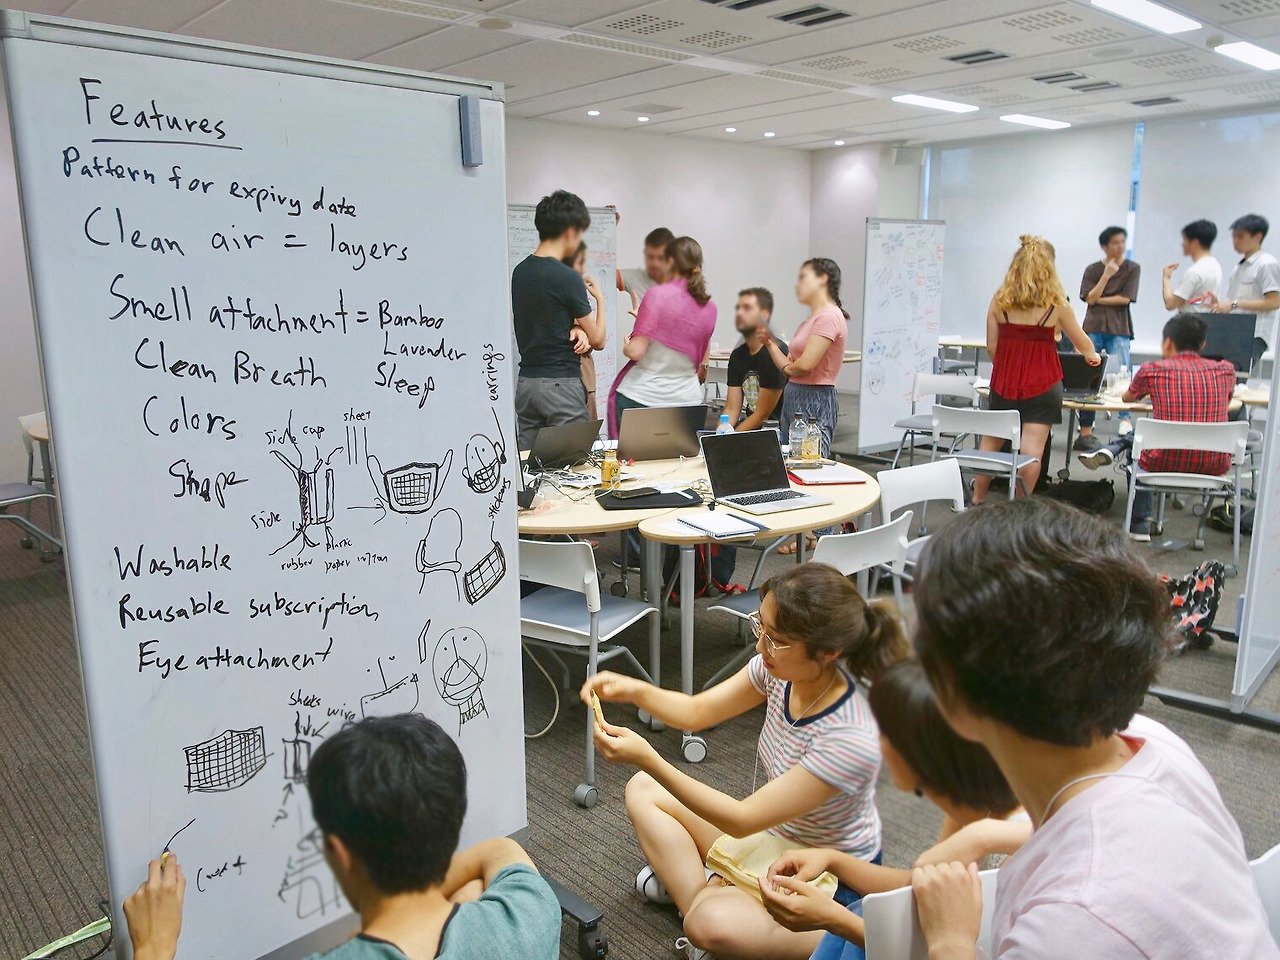 Features
Pattern for expiry date
Clean air = layers
Smell attachment = Bamboo
Lavender
Sleep
Clean Breath
earrings
Colors
side cap
sheet
Shape
side
plastic
rubber paper
sheets
Washable
Reusable subscription
Eye attachment
sheets
wire